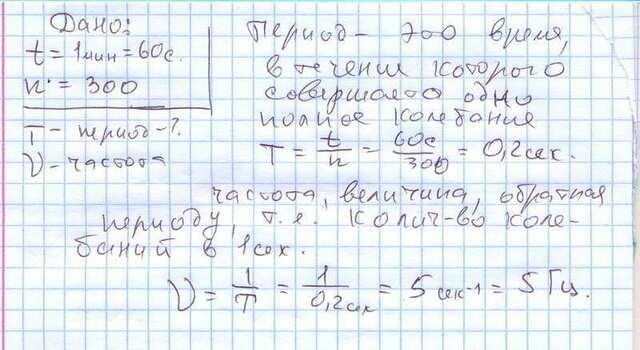 Дано:
t = 1 мин = 60 с.
n = 300
T - период - ?
ν - частота
Период - это время,
в течении которого
совершает одно
полное колебание
T = t/n = 60с/300 = 0,2 сек.
частота, величина, обратная
периоду, т.е. колич-во коле-
баний в 1 сек.
ν = 1/T = 1/0,2 сек = 5 сек-1 = 5 Гц.